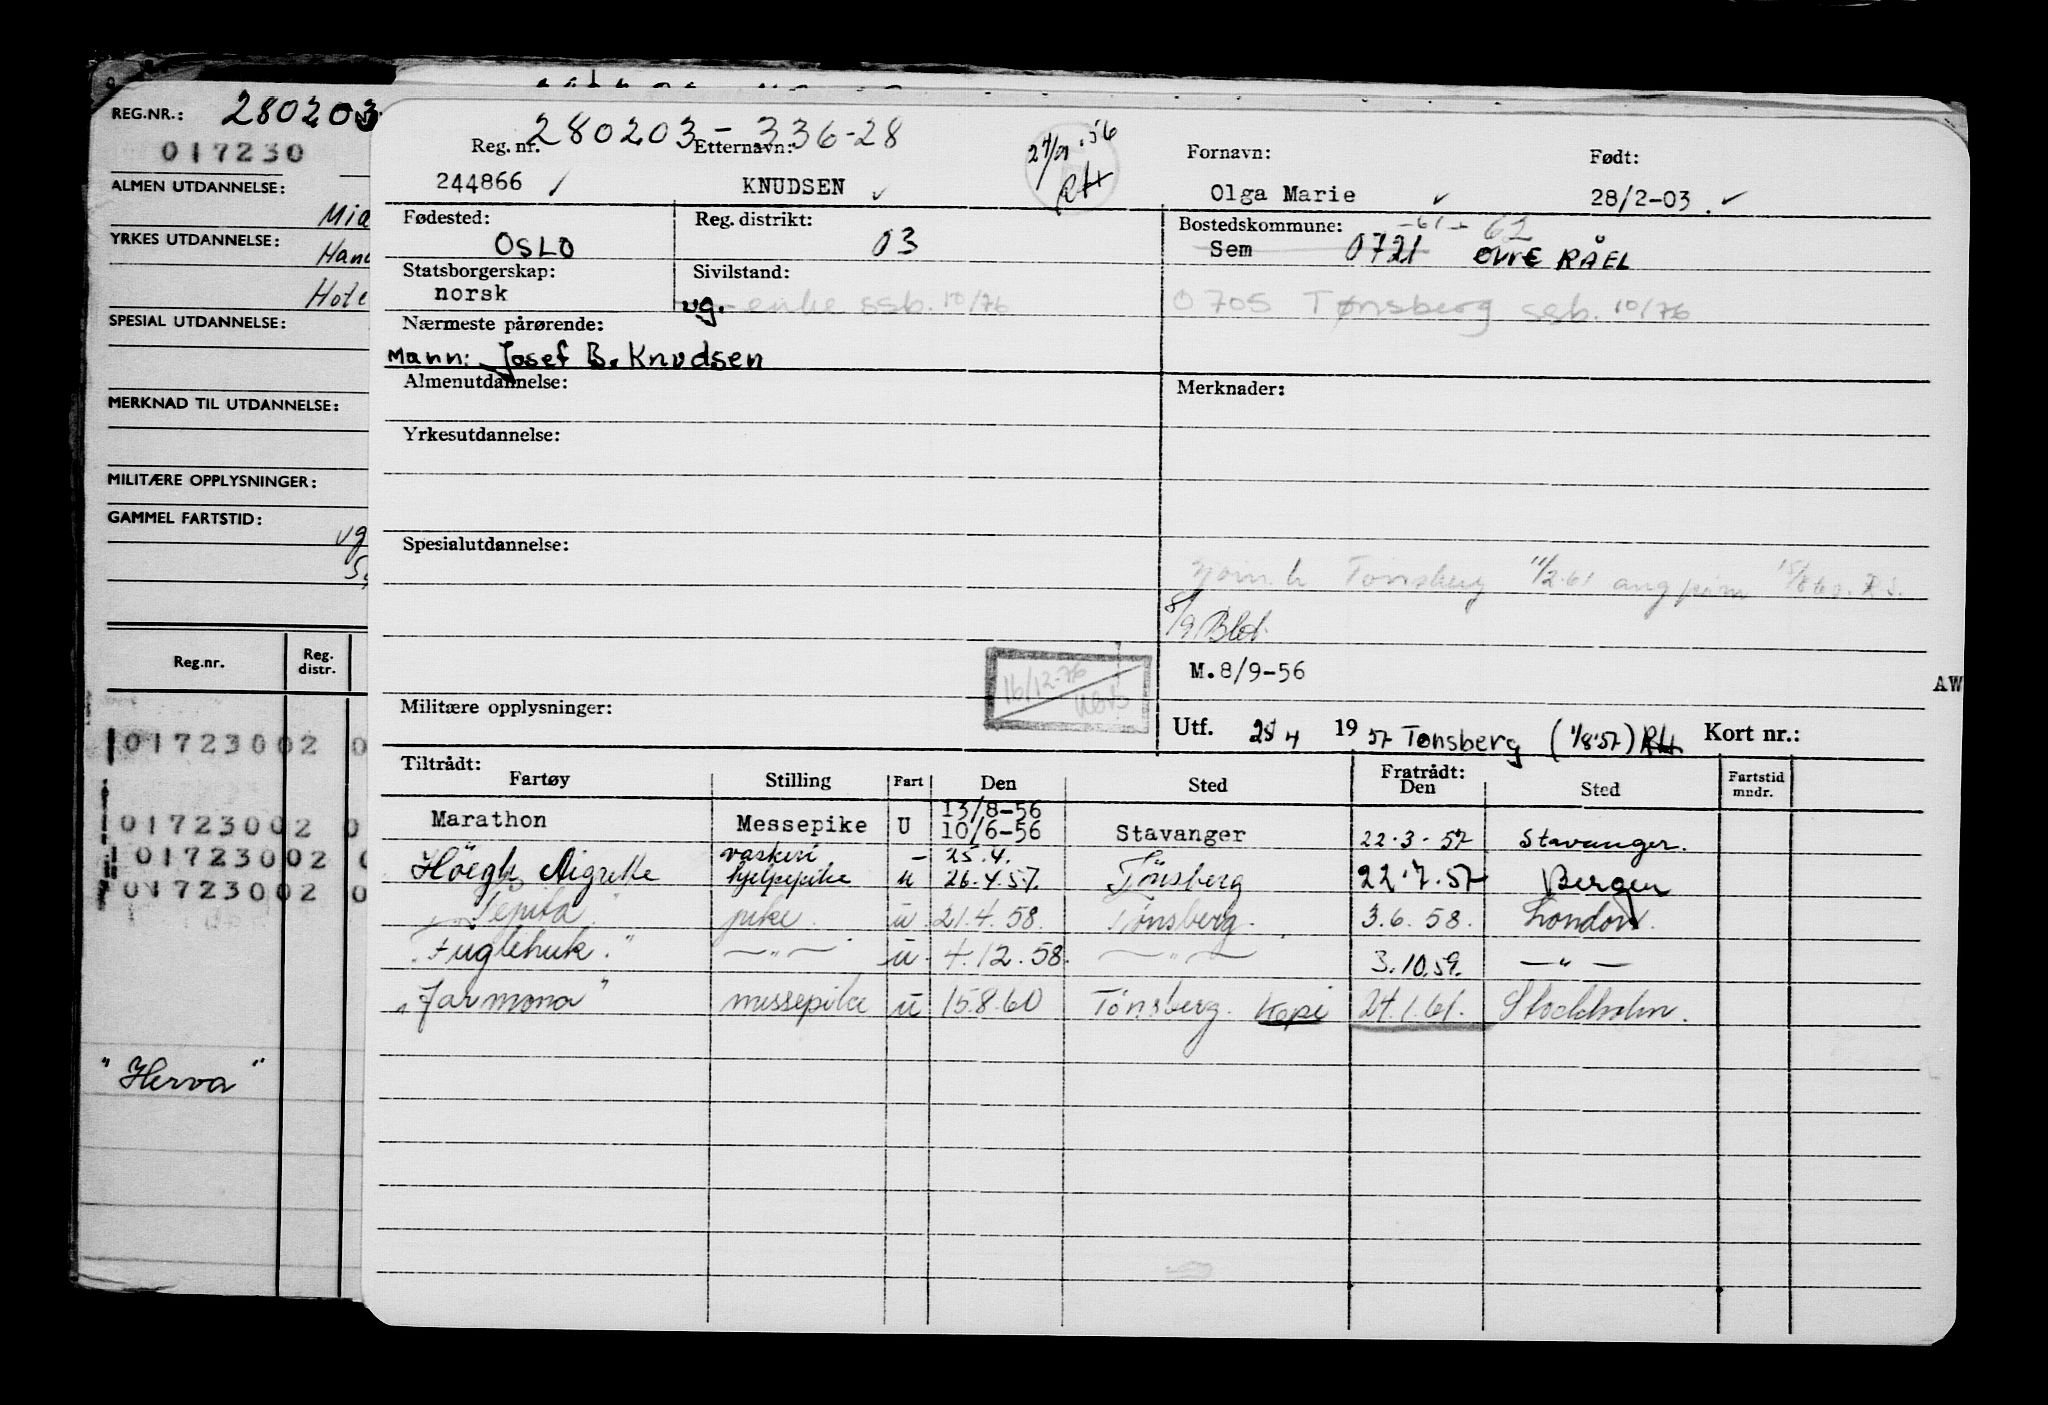 REG.NR.: 280203
017230
ALMEN UTDANNELSE:
YRKES UTDANNELSE:
SPESIAL UTDANNELSE:
MERKNAD TIL UTDANNELSE:
MILITÆRE OPPLYSNINGER:
GAMMEL FARTSTID:
vg
Reg.nr. Reg. distr.
01723002 0
01723002 0
01723002
01723002 0
"Herva"
280203-336-28
Reg. nr. Etternavn: Fornavn: Født:
244866 KNUDSEN Olga Marie 28/2-03.
Fødested: Reg. distrikt: Bostedskommune: -61-
OSLO 03 Sem 0721 ØVRE RÅEL
Statsborgerskap: Sivilstand:
norsk vg. enke ssb. 10/76 0705 Tønsberg ssb. 10/76
Nærmeste pårørende:
Mann: Josef B. Knudsen
Almenutdannelse: Merknader:
Yrkesutdannelse:
Spesialutdannelse:
Tønsberg 11/2.61
8/9 Blet.
16/12-76
M.8/9-56
AW
Militære opplysninger: Utf. 25/4 1957 Tønsberg (1/8'57) RH Kort nr.:
Tiltrådt: Fratrådt:
Fartøy Stilling Fart Den Sted Den Sted Fartstid mndr.
13/8-56
Marathon Messepike U 10/6-56 Stavanger 22.3.57 Stavanger.
vaskeri - 25.4.
Höegh Aigrette hjelpepike u 26.4.57. Tönsberg 22.7.57 Bergen
"Pepita" pike. u 21.4.58. Tønsberg. 3.6.58. London.
"Fuglehuk." —"— u. 4.12.58. —"— 3.10.59. —"—
"Farmona" messepike u 15.8.60 Tönsberg. Kopi 24.1.61. Stockholm.